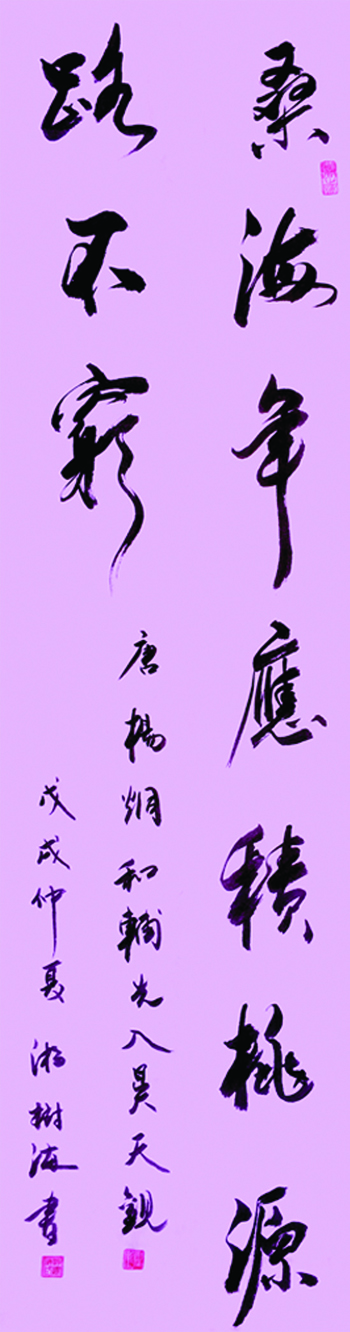 桑海年應積桃源
路不窮
唐楊炯和輔先入昊天觀
戊戌仲夏 湘樹海書